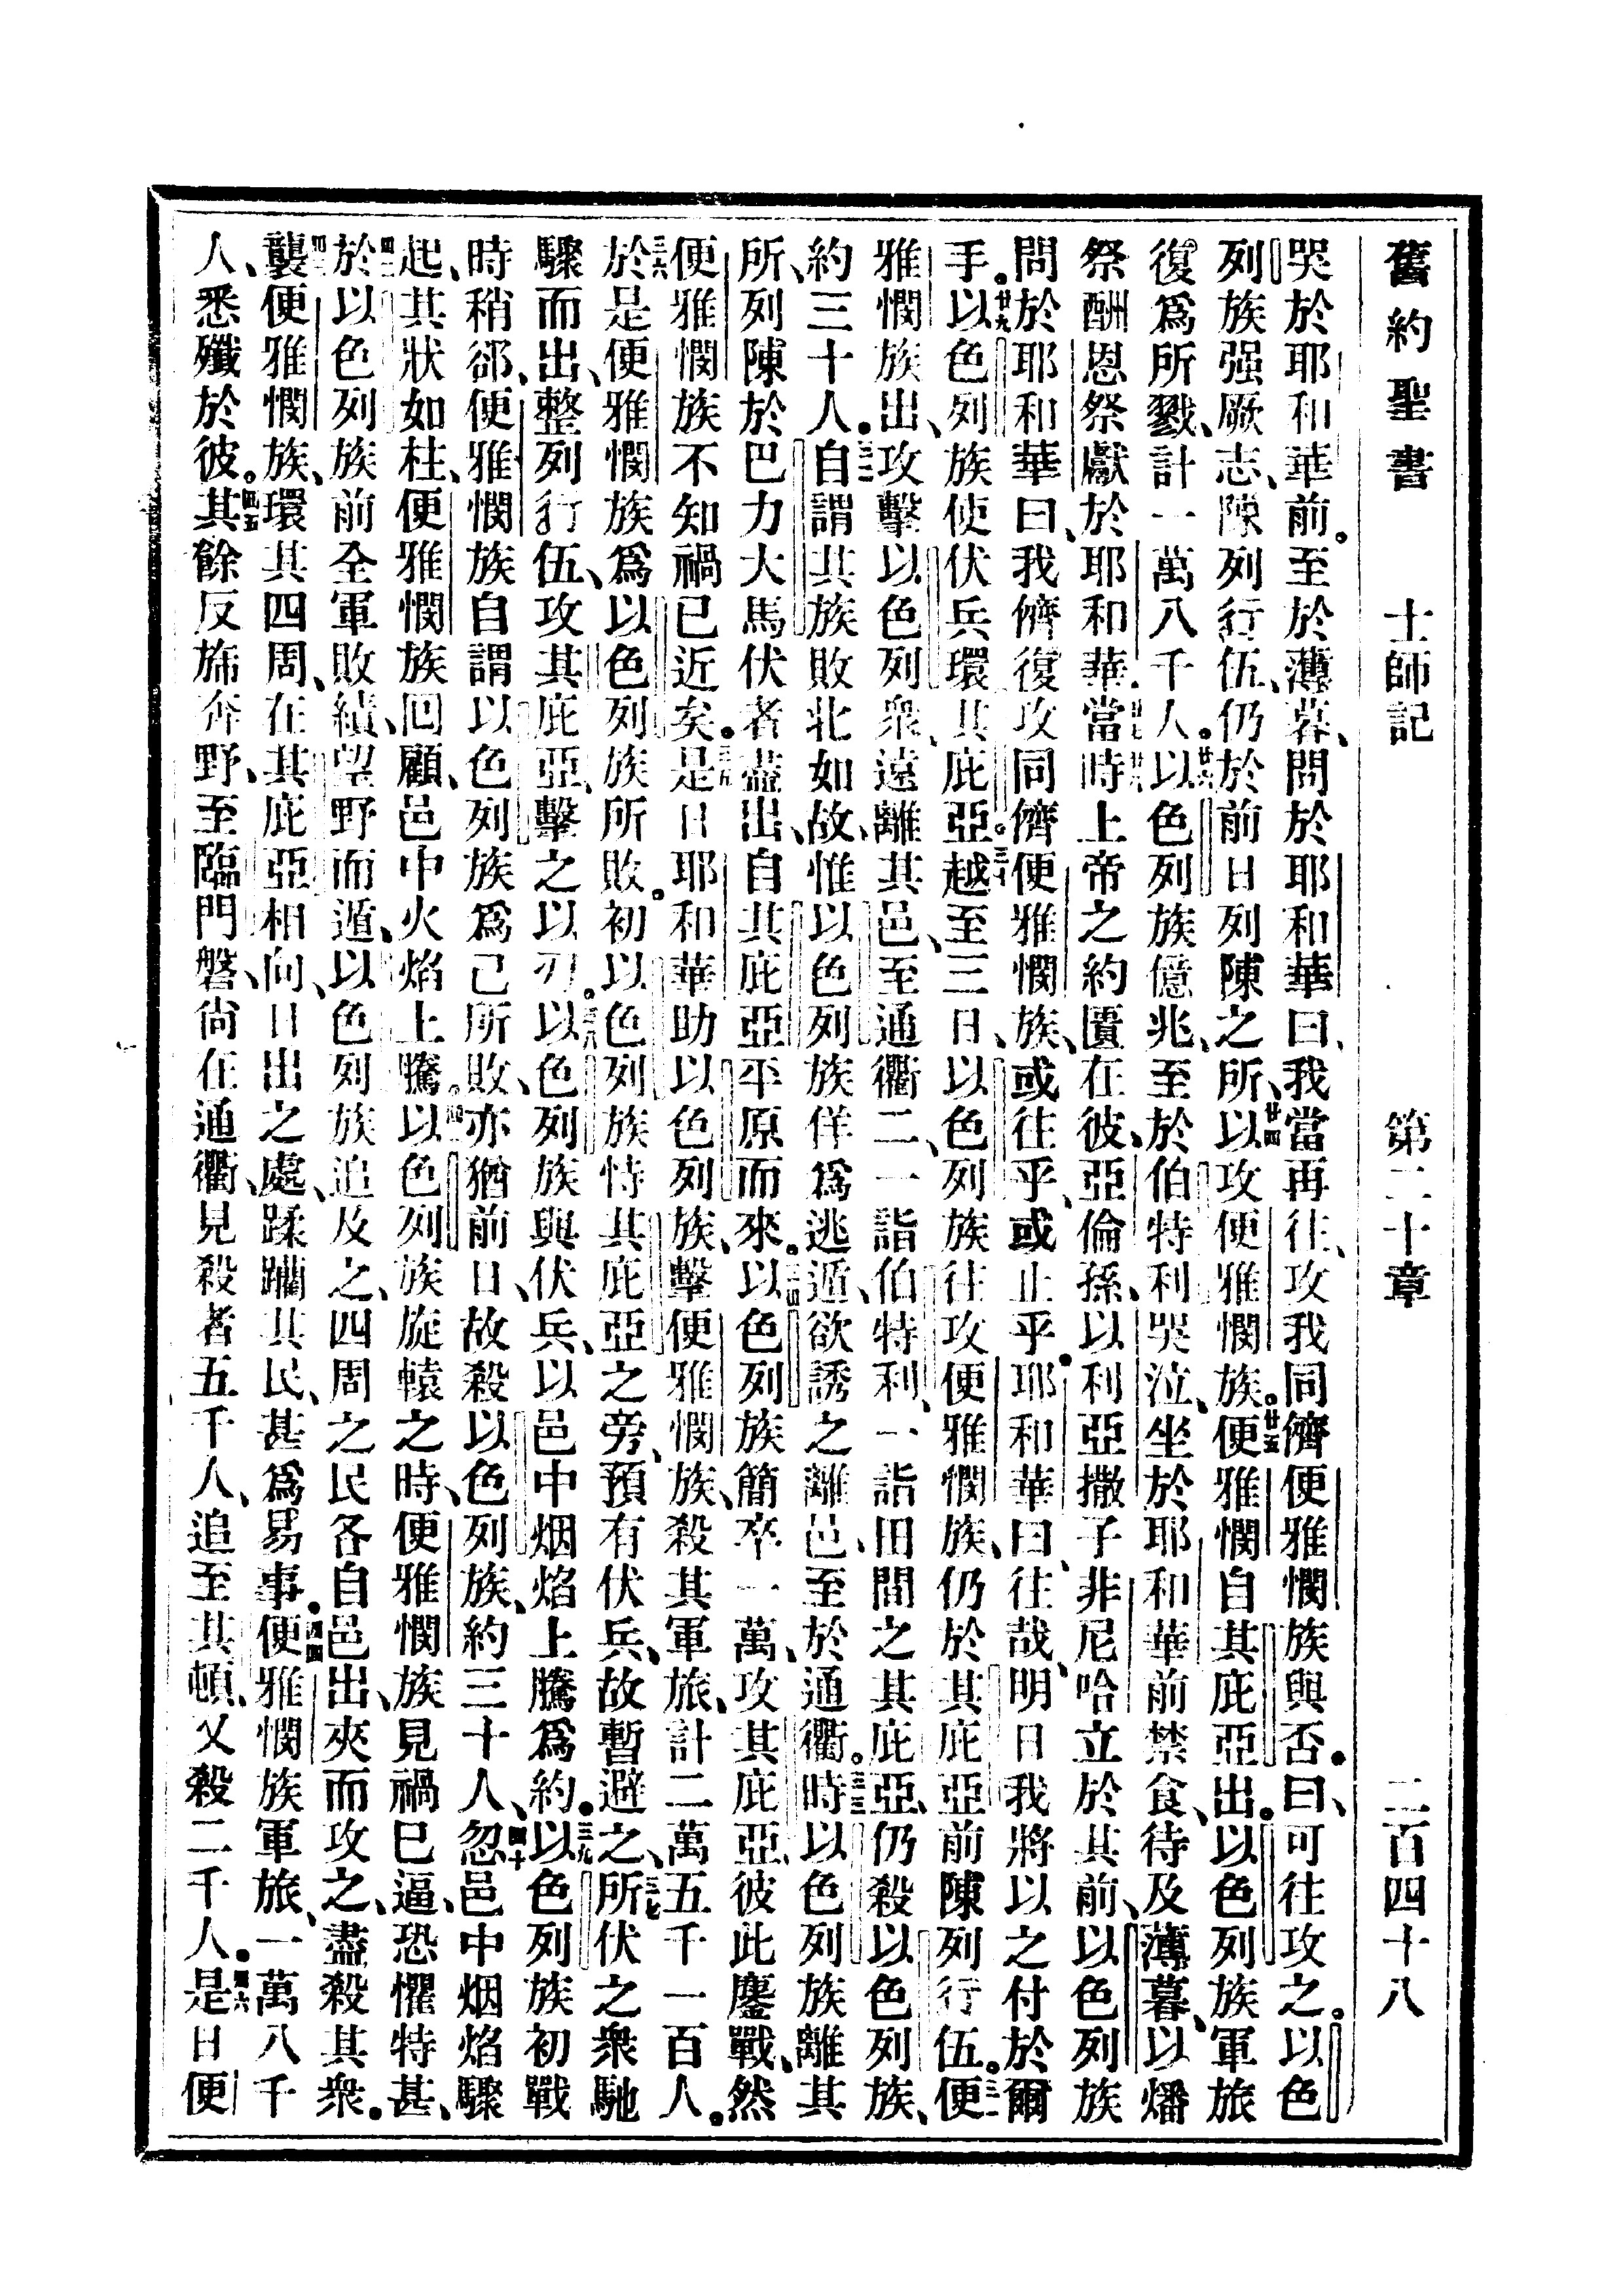 舊約聖書 士師記 第二十章 二百四十八
哭於耶和華前。至於薄暮、問於耶和華曰、我當再往、攻我同儕便雅憫族與否。曰、可往攻之。以色
列族强厥志、陳列行伍、仍於前日列陳之所、廿四以攻便雅憫族。廿五便雅憫自其庇亞出。以色列族軍旅
復爲所戮、計一萬八千人。廿六以色列族億兆、至於伯特利哭泣、坐於耶和華前禁食、待及薄暮、以燔
祭酬恩祭獻於耶和華、廿七廿八當時上帝之約匱在彼、亞倫孫、以利亞撒子非尼哈立於其前、以色列族
問於耶和華曰、我儕復攻同儕便雅憫族、或往乎、或止乎。耶和華曰、往哉、明日我將以之付於爾
手。廿九以色列族使伏兵環其庇亞。三十越至三日、以色列族往攻便雅憫族、仍於其庇亞前陳列行伍。三一便
雅憫族出、攻擊以色列衆、遠離其邑、至通衢二、一詣伯特利、一詣田間之其庇亞、仍殺以色列族、
約三十人。三二自謂其族敗北如故、惟以色列族佯爲逃遁、欲誘之離邑、至於通衢。三三時以色列族離其
所、列陳於巴力大馬伏者盡出、自其庇亞平原而來。三四以色列族簡卒一萬、攻其庇亞、彼此鏖戰、然
便雅憫族不知禍已近矣。三五是日耶和華助以色列族、擊便雅憫族、殺其軍旅、計二萬五千一百人。
三六於是便雅憫族爲以色列族所敗。初以色列族恃其庇亞之旁、預有伏兵、故暫避之、三七所伏之衆馳
驟而出、整列行伍、攻其庇亞、擊之以刃。三八以色列族與伏兵、以邑中烟焰上騰爲約。三九以色列族初戰
時稍郤、便雅憫族自謂以色列族爲己所敗、亦猶前日、故殺以色列族、約三十人、四十忽邑中烟焰驟
起、其狀如柱、便雅憫族回顧、邑中火焰上騰。四一以色列族旋轅之時、便雅憫族見禍已逼、恐懼特甚、
四二於以色列族前全軍敗績、望野而遁、以色列族追及之、四周之民各自邑出、夾而攻之、盡殺其衆。
四三襲便雅憫族、環其四周、在其庇亞相向、日出之處、蹂躪其民、甚爲易事。四四便雅憫族軍旅、一萬八千
人、悉殲於彼。四五其餘反旆奔野、至臨門磐、尚在通衢、見殺者五千人、追至其頓、又殺二千人。四六是日便